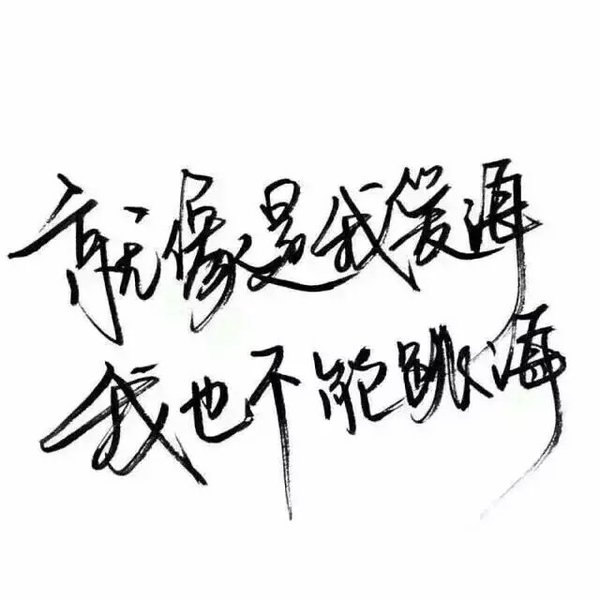 就像是我爱海
我也不能跳海